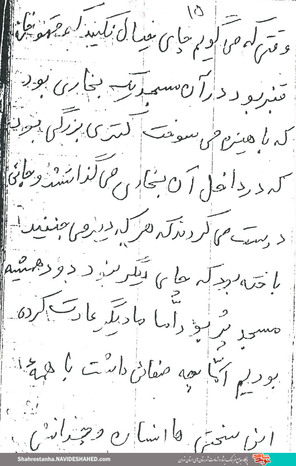 ۱۵
وقتی که می گویم چای خیال نکنید که قهوه خانه
قنبر بود در آن مسجد یک بخاری بود
که با هیزم می سوخت کتری بزرگی بود
که در داخل آن بخاری می گذاشتند و چائی
درست می کردند که هر که دیر می جنبید
باخته بود که چای دیگر نبود دود همیشه
مسجد پُر بود اما ما دیگر عادت کرده
بودیم امّا چه صفائی داشت با همهٔ
این سختی ها انسان وجدانش
Shahrestanha.NAVIDESHAHED.com